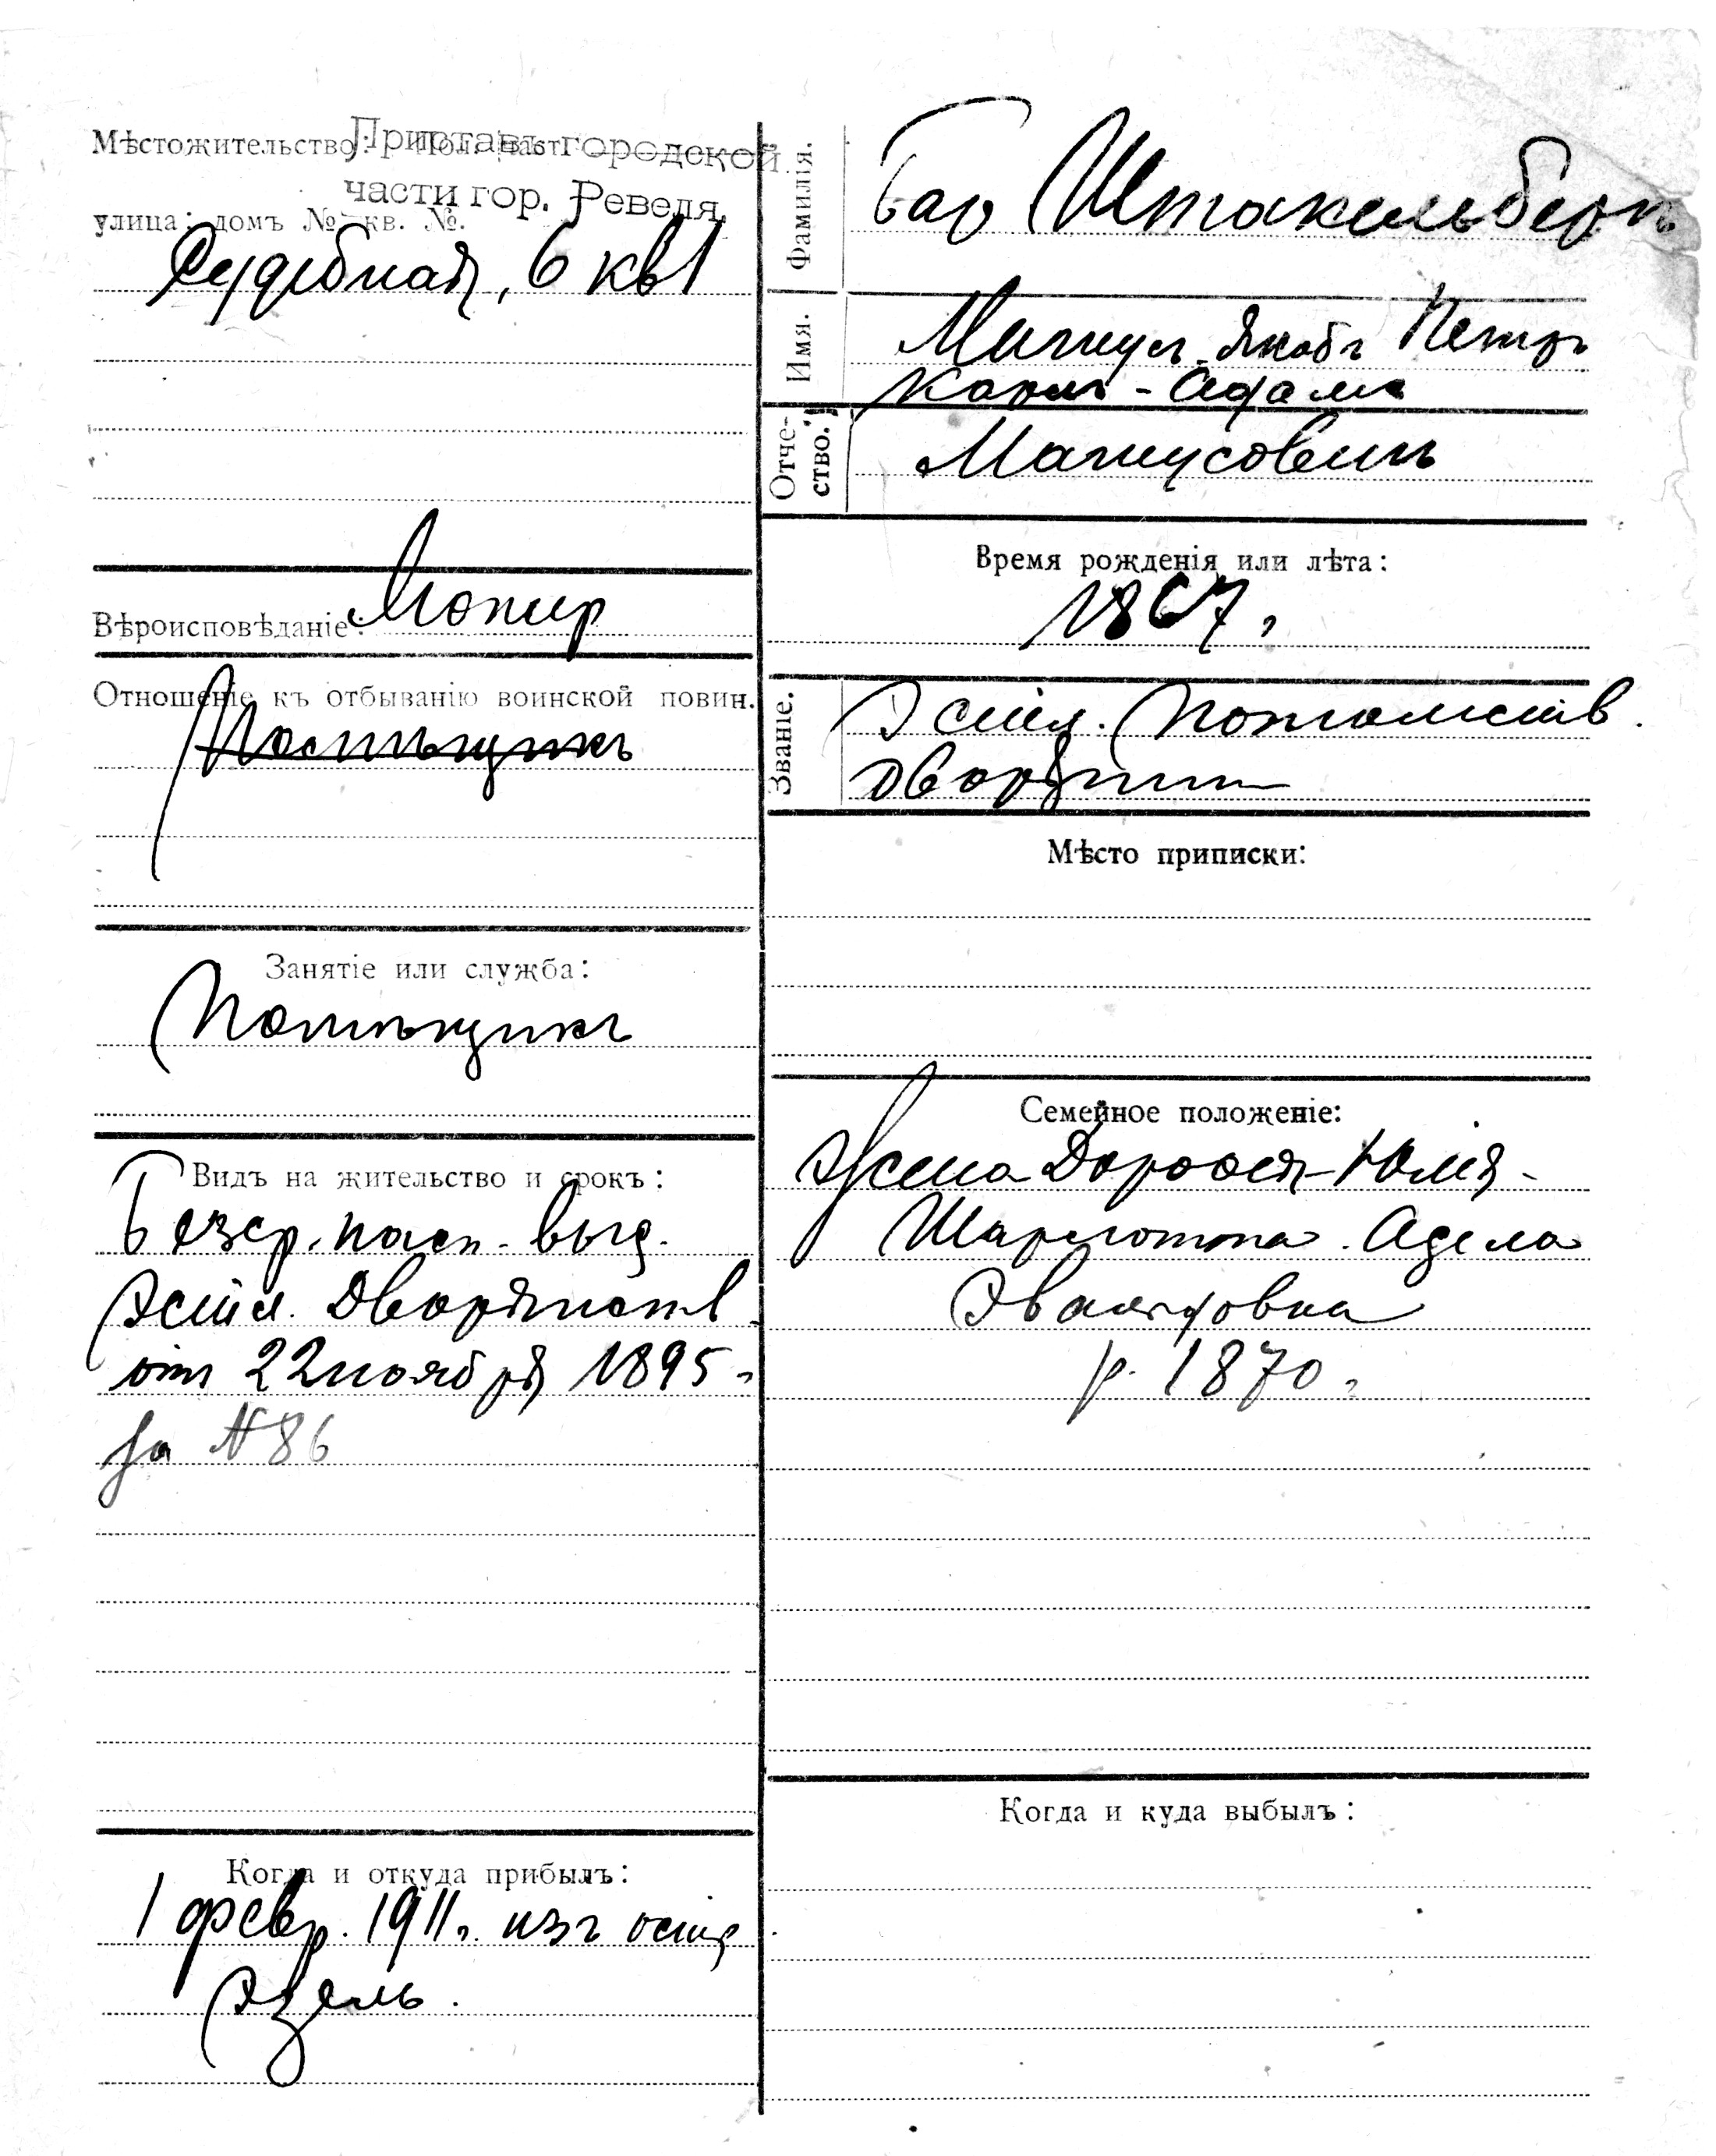 Мѣстожительство: Пол. част
Приставъ городской
части гор. Ревеля.
улица: домъ № кв. №.
Судебная, 6 кв 1
Вѣроисповѣданіе:
Лютер
Отношеніе къ отбыванію воинской повин.
Помѣщикъ
Занятіе или служба:
Помѣщикъ
Видъ на жительство и срокъ:
Безср. пасп. выд.
Эстл. Дворянств
отъ 22 ноября 1895 г
за № 86
Когда и откуда прибылъ:
1 февр. 1911 г. изъ
Эзель.
Фамилія.
Бар Штакельбергъ
Имя.
Магнусъ Якобъ Петръ
Карлъ-Адамъ
Отче-
ство.
Магнусовичъ
Время рожденія или лѣта:
1867 г
Званіе.
Эстл. Потомств.
дворянин
Мѣсто приписки:
Семейное положеніе:
Жена Доротея-Юлія-
Шарлотта-Адела
Эвальдовна
р. 1870 г
Когда и куда выбылъ: